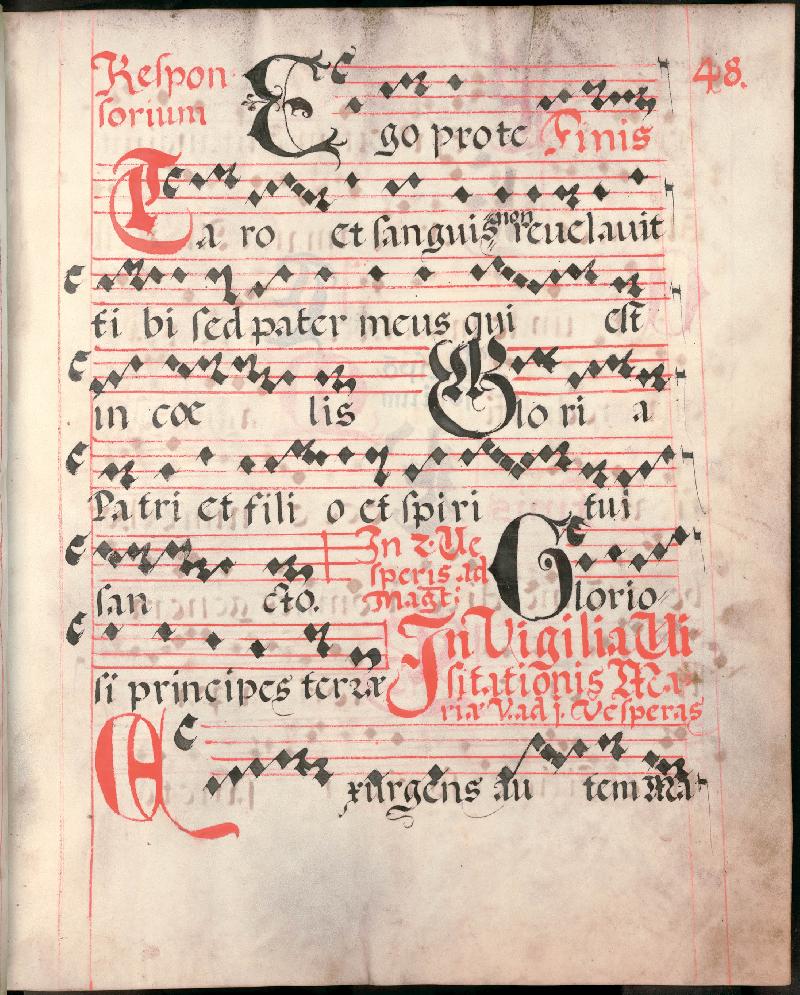 Reſpon
ſorium
48.
Ego pro te Finis
Caro et ſanguis non reuelauit
ti bi ſed pater meus qui eſt
in cœ lis Glo ri a
Patri et fili o et ſpiri tui
ſan cto. In 2. Ve
ſperis ad
Magt: Glorio
ſi principes terræ In Vigilia Vi
ſitatiõnis Ma
riæ V. ad j. Veſperas
Exurgens au tem Ma